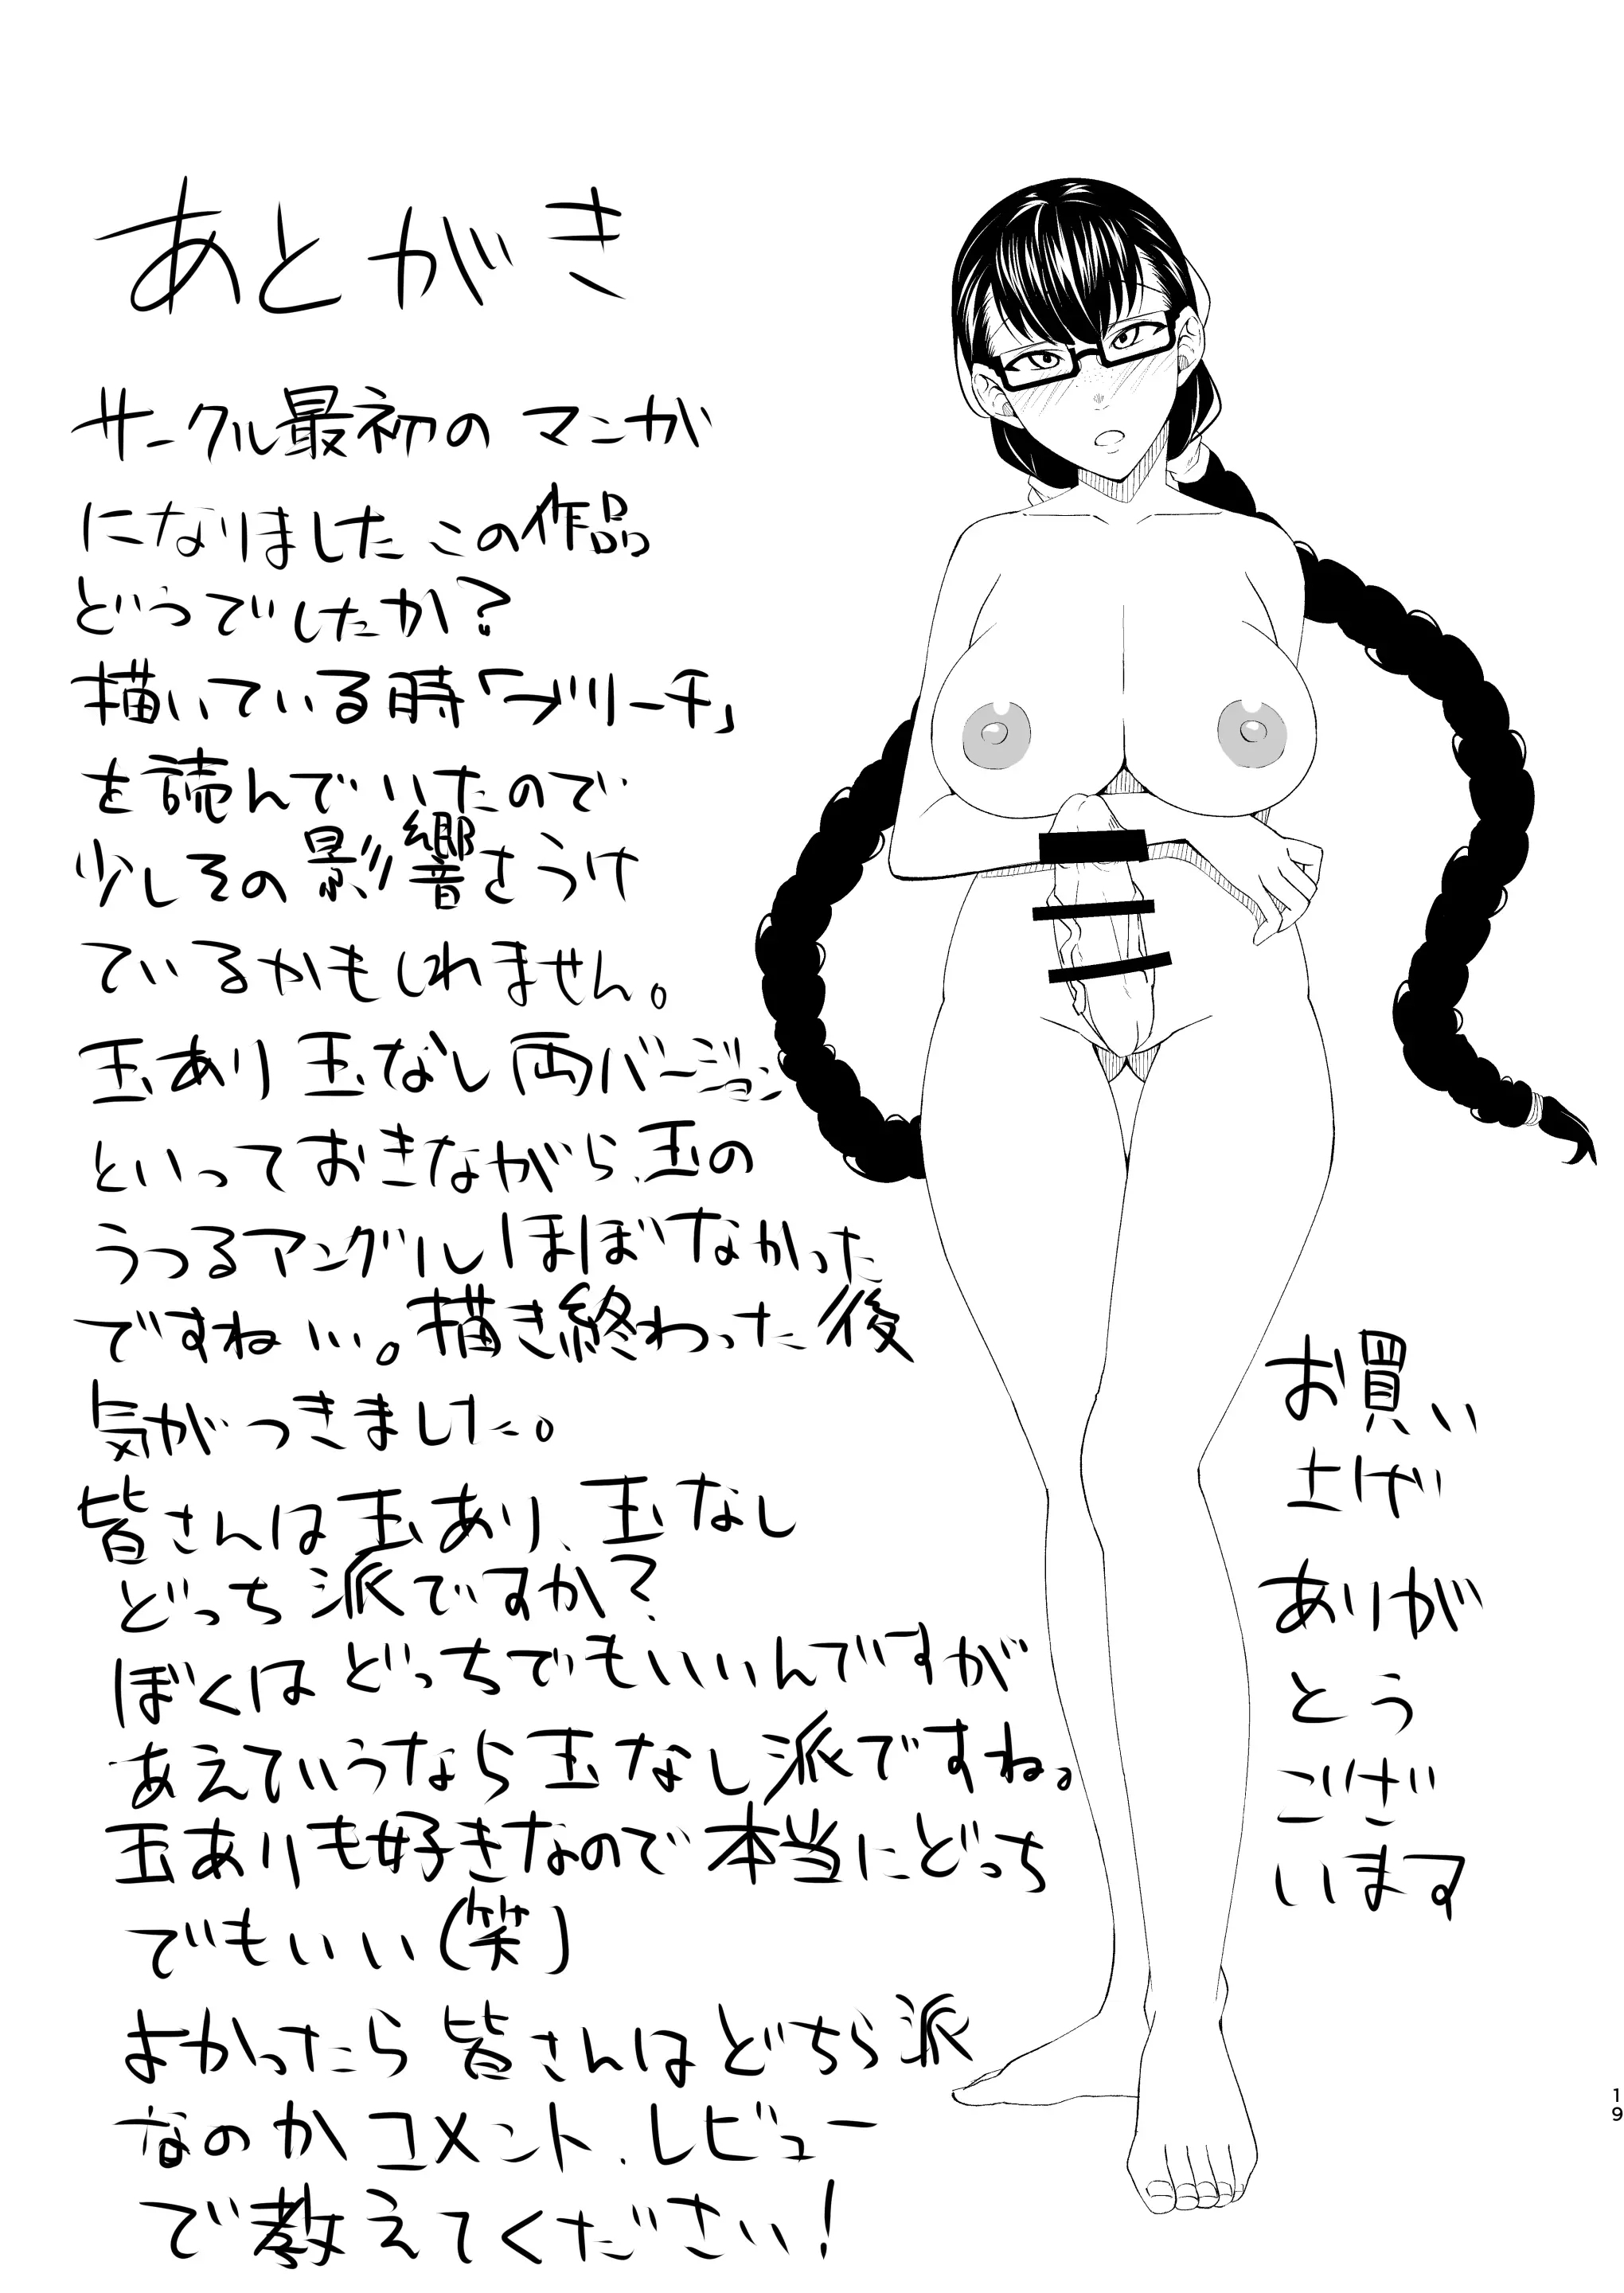 あとがき
サークル最初のマンガ
になりましたこの作品
どうでしたか?
描いている時「ブリーチ」
を読んでいたので
少しその影響をうけ
ているかもしれません。
玉あり玉なし両バージョン
といっておきながら、玉の
うつるアングルほぼなかった
ですね…。描き終わった後
気がつきました。
皆さんは玉あり、玉なし
どっち派ですか?
ぼくはどっちでもいいんですが
あえていうなら玉なし派ですね。
玉ありも好きなので本当にどっち
でもいい(笑)
よかったら皆さんはどちら派
なのかコメント、レビュー
で教えてください!
お買い
上げ
ありが
とう
ござ
います
19